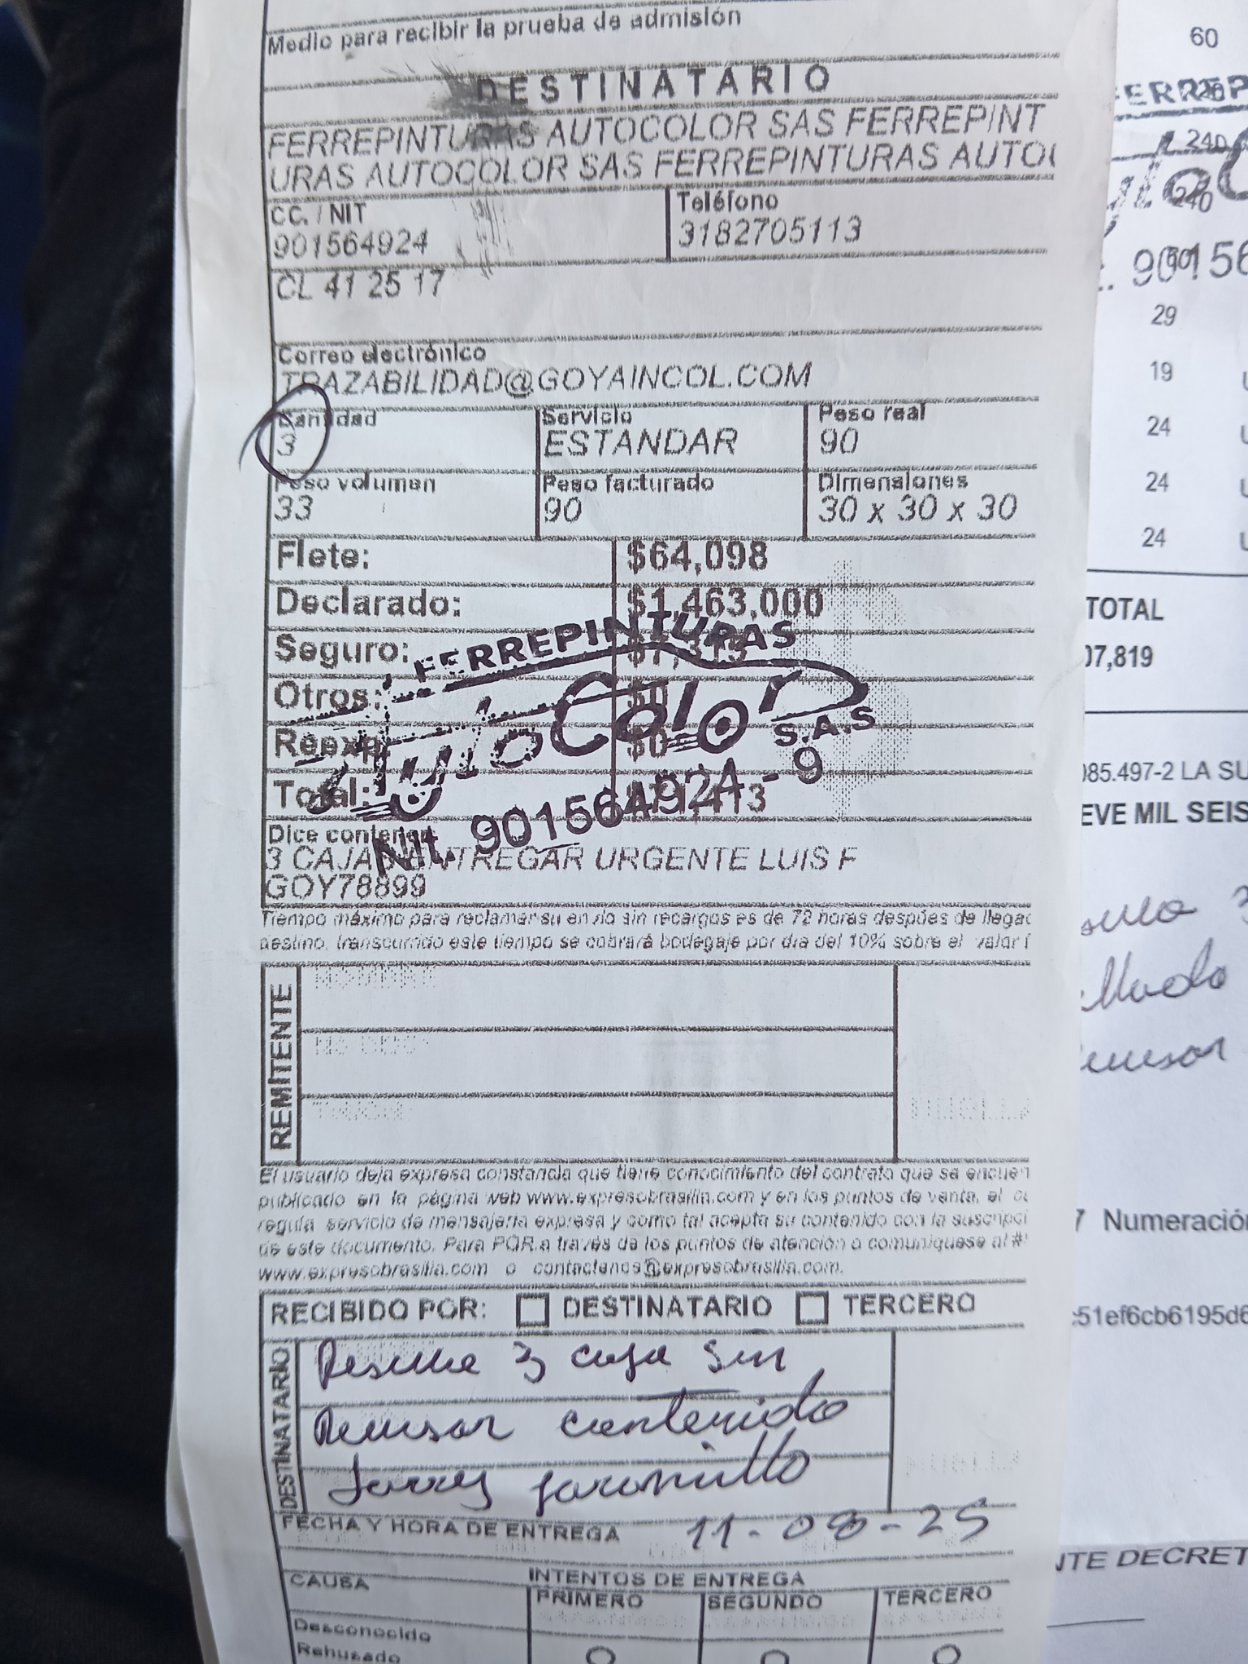 Medio para recibir la prueba de admisión
DESTINATARIO
FERREPINTURAS AUTOCOLOR SAS FERREPINT
URAS AUTOCOLOR SAS FERREPINTURAS AUTO
CC. / NIT
901564924
Teléfono
3182705113
CL 41 25 17
Correo electrónico
TRAZABILIDAD@GOYAINCOL.COM
Cantidad
3
Servicio
ESTANDAR
Peso real
90
Peso volumen
33
Peso facturado
90
Dimensiones
30 x 30 x 30
Flete: $64,098
Declarado: $1,463,000
Seguro: $7,315
Otros: $0
Reexp: $0
Total:
FERREPINTURAS
AutoColor S.A.S
Nit. 901564924-9
Dice contener:
3 CAJAS ENTREGAR URGENTE LUIS F
GOY78899
Tiempo máximo para reclamar su envío sin recargos es de 72 horas despúes de llegad
destino, transcurrido este tiempo se cobrará bodegaje por dia del 10% sobre el valor f
REMITENTE
El usuario deja expresa constancia que tiene conocimiento del contrato que se encuen
publicado en la página web www.expresobrasilia.com y en los puntos de venta, el
regula servicio de mensajería expresa y como tal acepta su contenido con la suscripci
de este documento. Para PQR a través de los puntos de atención o comuniquese al #
www.expresobrasilia.com o contactenos@expresobrasilia.com.
RECIBIDO POR: DESTINATARIO TERCERO
DESTINATARIO
3 caja sin
Revisar contenido
Jaramillo
FECHA Y HORA DE ENTREGA 11-08-25
CAUSA
INTENTOS DE ENTREGA
PRIMERO SEGUNDO TERCERO
Desconocido
Rehusado
60
240
29
19
24
24
24
TOTAL
07,819
085.497-2 LA SU
EVE MIL SEIS
7 Numeración
c51ef6cb6195d6
NTE DECRET